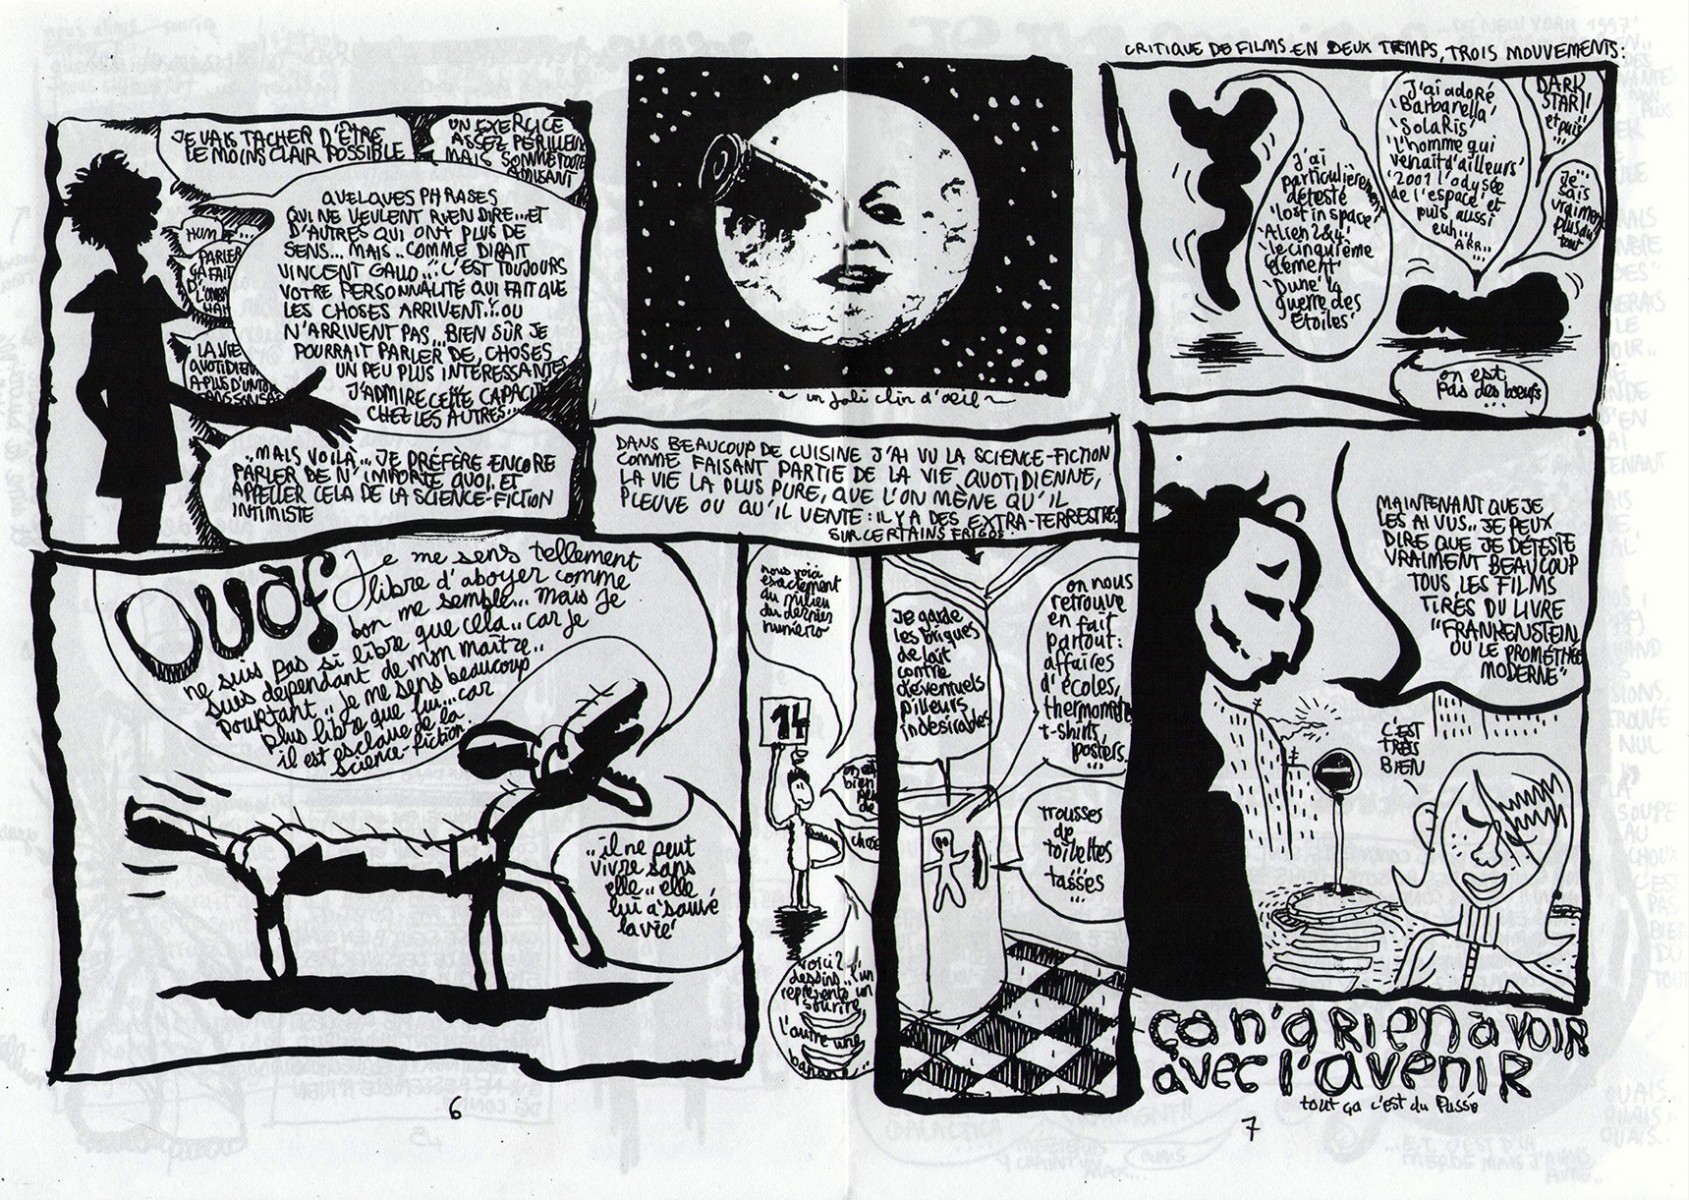 JE VAIS TACHER D'ÊTRE
LE MOINS CLAIR POSSIBLE
UN EXERCICE
ASSEZ PÉRILLEUX
MAIS SOMME TOUTE
AMUSANT
HUM
PARLER
ÇA FAIT
D'L'OMBR
HAH
LA VIE
QUOTIDIEN
A PLUS D'UN
QUELQUES PHRASES
QUI NE VEULENT RIEN DIRE...ET
D'AUTRES QUI ONT PLUS DE
SENS... MAIS.. COMME DIRAIT
VINCENT GALLO... C'EST TOUJOURS
VOTRE PERSONNALITÉ QUI FAIT QUE
LES CHOSES ARRIVENT...OU
N'ARRIVENT PAS...BIEN SÛR JE
POURRAIT PARLER DE CHOSES
UN PEU PLUS INTERESSANTES
J'ADMIRE CETTE CAPACITÉ
CHEZ LES AUTRES...
..MAIS VOILÀ...JE PRÉFÈRE ENCORE
PARLER DE N'IMPORTE QUOI ET
APPELLER CELA DE LA SCIENCE-FICTION
INTIMISTE
~ un joli clin d'oeil ~
DANS BEAUCOUP DE CUISINE J'AI VU LA SCIENCE-FICTION
COMME FAISANT PARTIE DE LA VIE QUOTIDIENNE,
LA VIE LA PLUS PURE, QUE L'ON MÈNE QU'IL
PLEUVE OU QU'IL VENTE: IL Y A DES EXTRA-TERRESTRES
SUR CERTAINS FRIGOS
CRITIQUE DE FILMS EN DEUX TEMPS, TROIS MOUVEMENTS:
J'ai
particulièrement
détesté
'lost in space'
'Alien 2&4'
'le cinquième
élément'
'Dune' 'la
guerre des
Étoiles'
J'ai adoré
'Barbarella'
'Solaris'
'l'homme qui
venait d'ailleurs'
'2001 l'odysée
de l'espace' et
puis, aussi
euh...
ARR..
DARK
STAR!!
et puis
Je...
sais
vraiment
plus du
tout
on est
pas des boeufs
...
OUAF
Je me sens tellement
libre d'aboyer comme
bon me semble... mais je
ne suis pas si libre que cela.. car je
suis dépendant de mon maître..
pourtant.. je me sens beaucoup
plus libre que lui... car
il est esclave de la
science-fiction
..il ne peut
vivre sans
elle.. elle
lui a sauvé
la vie
nous voici
exactement
au milieu
du dernier
numéro
14
on est
bien peu
de
chose
voici 2
dessins.. un
représente un
sourire
l'autre une
banane...
Je garde
les briques
de lait
contre
d'éventuels
pilleurs
indésirables
on nous
retrouve
en fait
partout:
affaires
d'écoles,
thermomètres
t-shirts,
posters..
...
trousses
de
toilettes
tasses
...
MAINTENANT QUE JE
LES AI VUS.. JE PEUX
DIRE QUE JE DÉTESTE
VRAIMENT BEAUCOUP
TOUS LES FILMS
TIRÉS DU LIVRE
"FRANKENSTEIN
OU LE PROMÉTHÉE
MODERNE"
C'EST
TRÈS
BIEN
ça n'a rien à voir
avec l'avenir
tout ça c'est du Passé
6
7